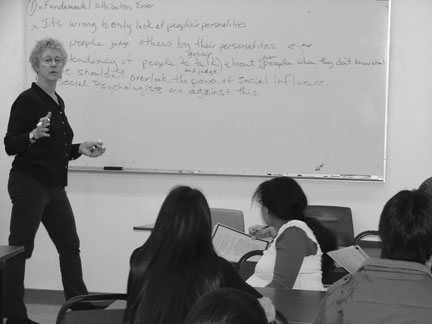 ① Fundamental Attribution Error
Its wrong to only look at people's personalities
people judge others by their personalities
gossip
tendency of people to talk about people when they don't know
and judge
shouldn't overlook the power of Social influence.
Social Psychologists are against this